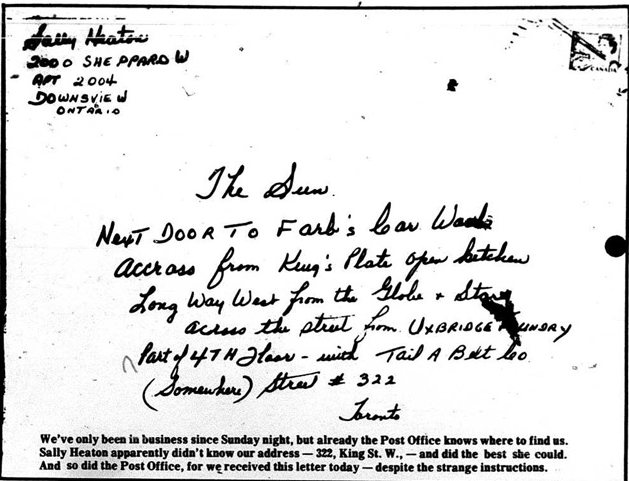 Sally Heaton
2000 SHEPPARD W
APT 2004
DOWNSVIEW
ONTARIO
CANADA
The Sun.
NEXT DOOR TO Farb's Car Wash
accross from King's Plate open kitchen
Long Way West from the Globe + Star
across the street from UXBRIDGE
Part of 4TH Floor - with Tail A Belt Co.
(Somewhere) Street # 322
Toronto
We've only been in business since Sunday night, but already the Post Office knows where to find us.
Sally Heaton apparently didn't know our address — 322, King St. W., — and did the best she could.
And so did the Post Office, for we received this letter today — despite the strange instructions.